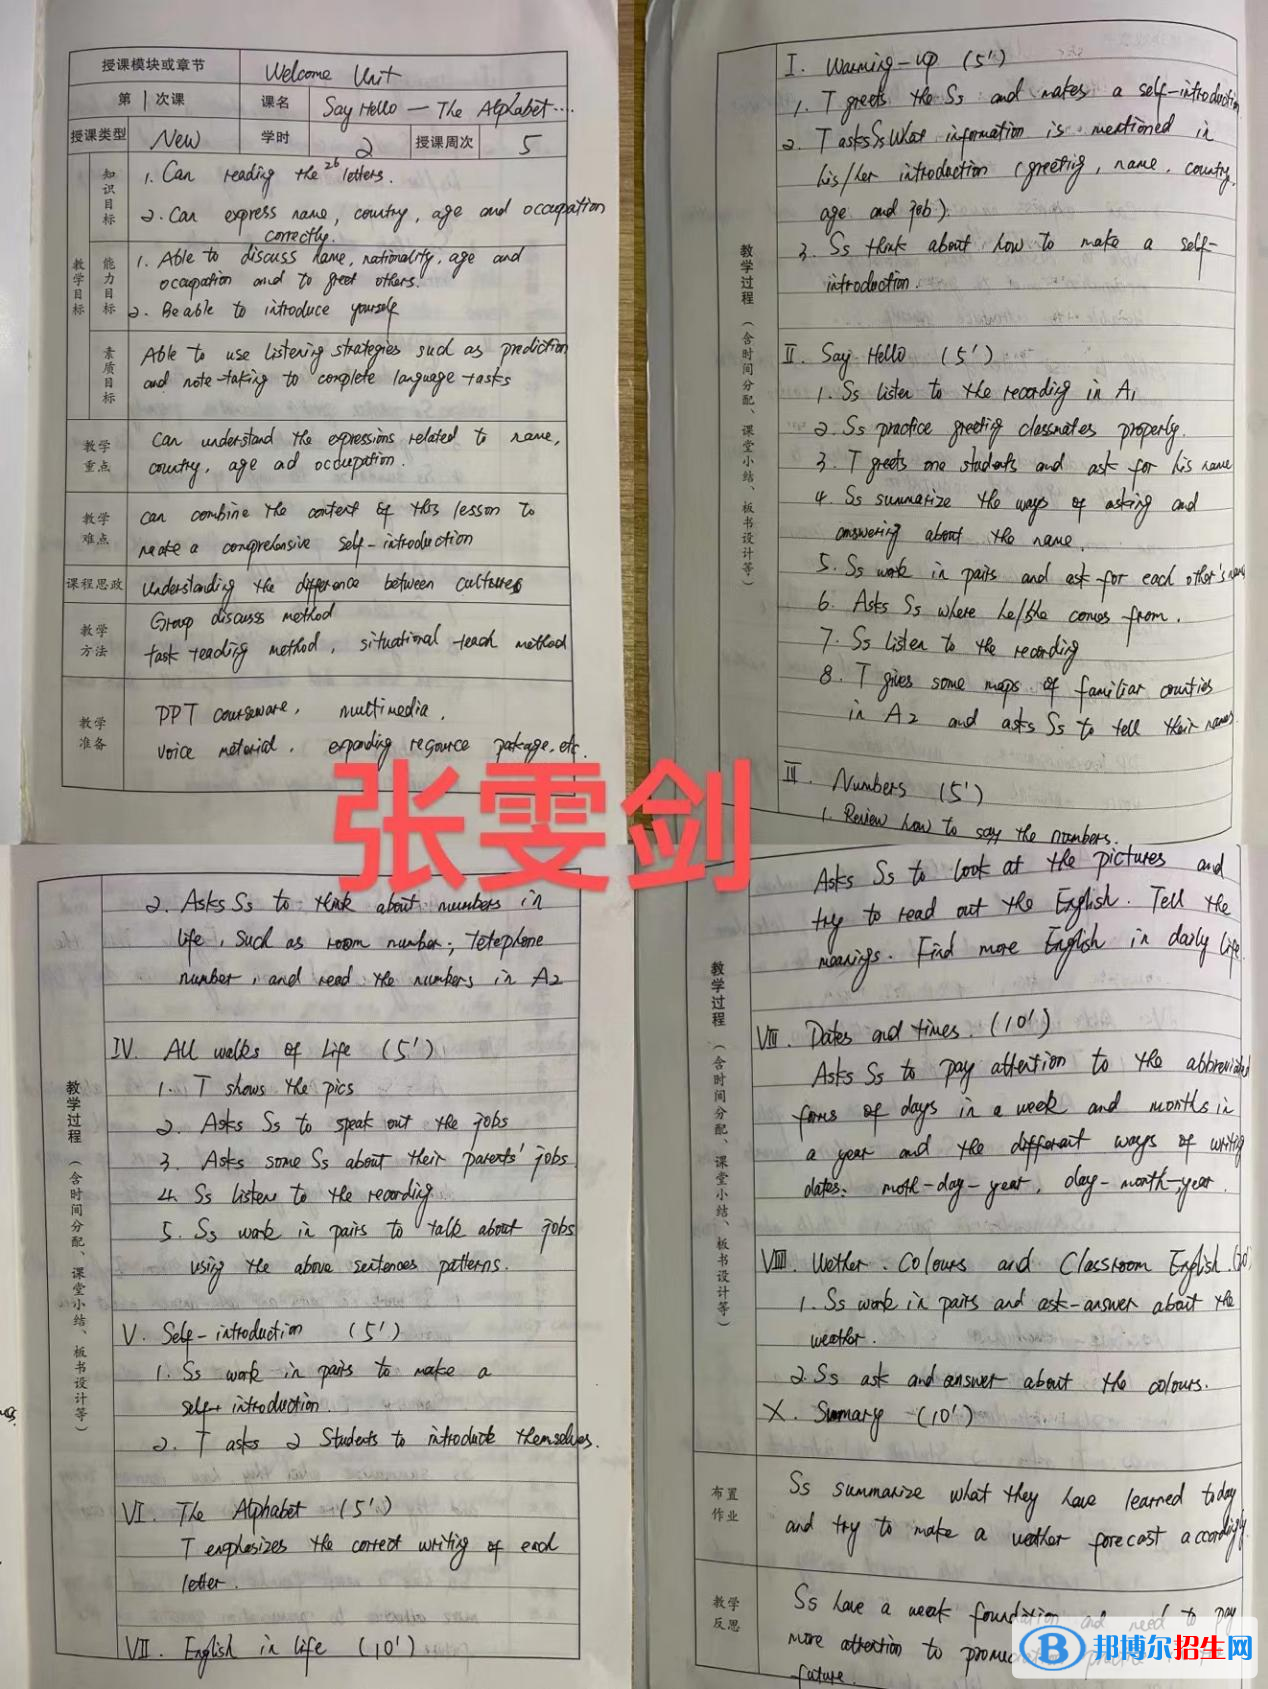 授课模块或章节 Welcome Unit
第 1 次课 课名 Say Hello — The Alphabet...
授课类型 New 学时 2 授课周次 5
教学目标
知识目标
1. Can reading the 26 letters.
2. Can express name, country, age and occupation
correctly.
能力目标
1. Able to discuss name, nationality, age and
occupation and to greet others.
2. Be able to introduce yourself
素质目标
Able to use listening strategies such as prediction
and note-taking to complete language tasks
教学重点
can understand the expressions related to name,
country, age ad occupation.
教学难点
can combine the content of this lesson to
make a comprehensive self-introduction
课程思政 Understanding the difference between cultures
教学方法
Group discuss method
task teading method, situational teach method
教学准备
PPT courseware, multimedia,
voice material, expanding resource package, etc.
教学过程（含时间分配、课堂小结、板书设计等）
I. Warming-up (5')
1. T greets the Ss and makes a self-introduction
2. T asks Ss what information is mentioned in
his/her introduction (greeting, name, country,
age and job).
3. Ss think about how to make a self-
introduction.
II. Say Hello (5')
1. Ss listen to the recording in A1
2. Ss practice greeting classmates properly.
3. T greets one students and ask for his name
4. Ss summarize the ways of asking and
answering about the name.
5. Ss work in pairs and ask for each other's name
6. Asks Ss where he/she comes from.
7. Ss listen to the recording
8. T gives some maps of familiar counties
in A2 and asks Ss to tell their names
III. Numbers (5')
1. Review how to say the numbers.
张雯剑
教学过程（含时间分配、课堂小结、板书设计等）
2. Asks Ss to think about numbers in
life, such as room number, Tetephone
number, and read the numbers in A2
IV. All walks of Life (5')
1. T shows the pics
2. Asks Ss to speak out the jobs
3. Asks some Ss about their parents' jobs
4. Ss listen to the recording
5. Ss work in pairs to talk about jobs
using the above sentences patterns.
V. Self-introduction (5')
1. Ss work in pairs to make a
self-introduction.
2. T asks 2 Students to introduce themselves.
VI. The Alphabet (5')
T emphasizes the correct writing of each
letter.
VII. English in life (10')
教学过程（含时间分配、课堂小结、板书设计等）
Asks Ss to look at the pictures and
try to read out the English. Tell the
meanings. Find more English in daily life.
VIII. Dates and times. (10')
Asks Ss to pay attention to the abbreviated
forms of days in a week and months in
a year and the different ways of writing
dates: moth-day-year, day-month-year.
VIII. Wether. Colours and Classroom English. (10'
1. Ss work in pairs and ask-answer about the
weather.
2. Ss ask and answer about the colours.
X. Summary (10')
布置作业
Ss summarize what they have learned today
and try to make a weather forecast accordingly.
教学反思
Ss have a weak foundation and need to pay
more attention to
future.
邦博尔招生网